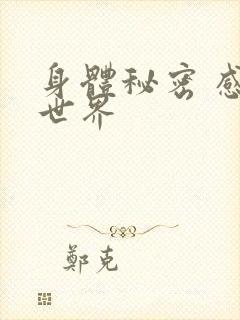 身體秘密 感
世界
鄭克